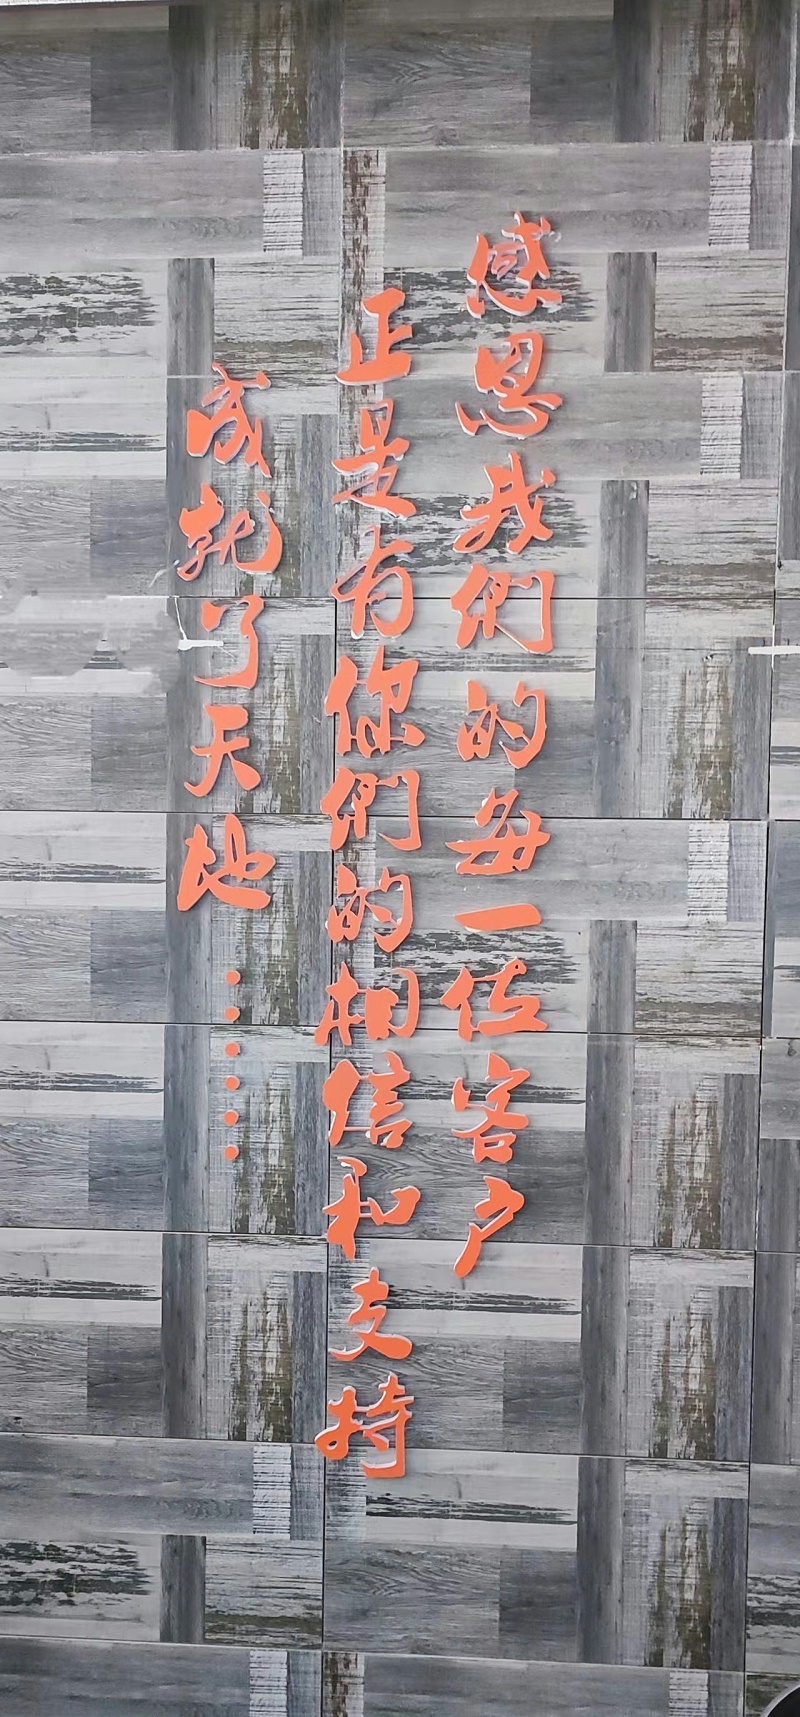 感恩我們的每一位客户
正是有你們的相信和支持
成就了天地……